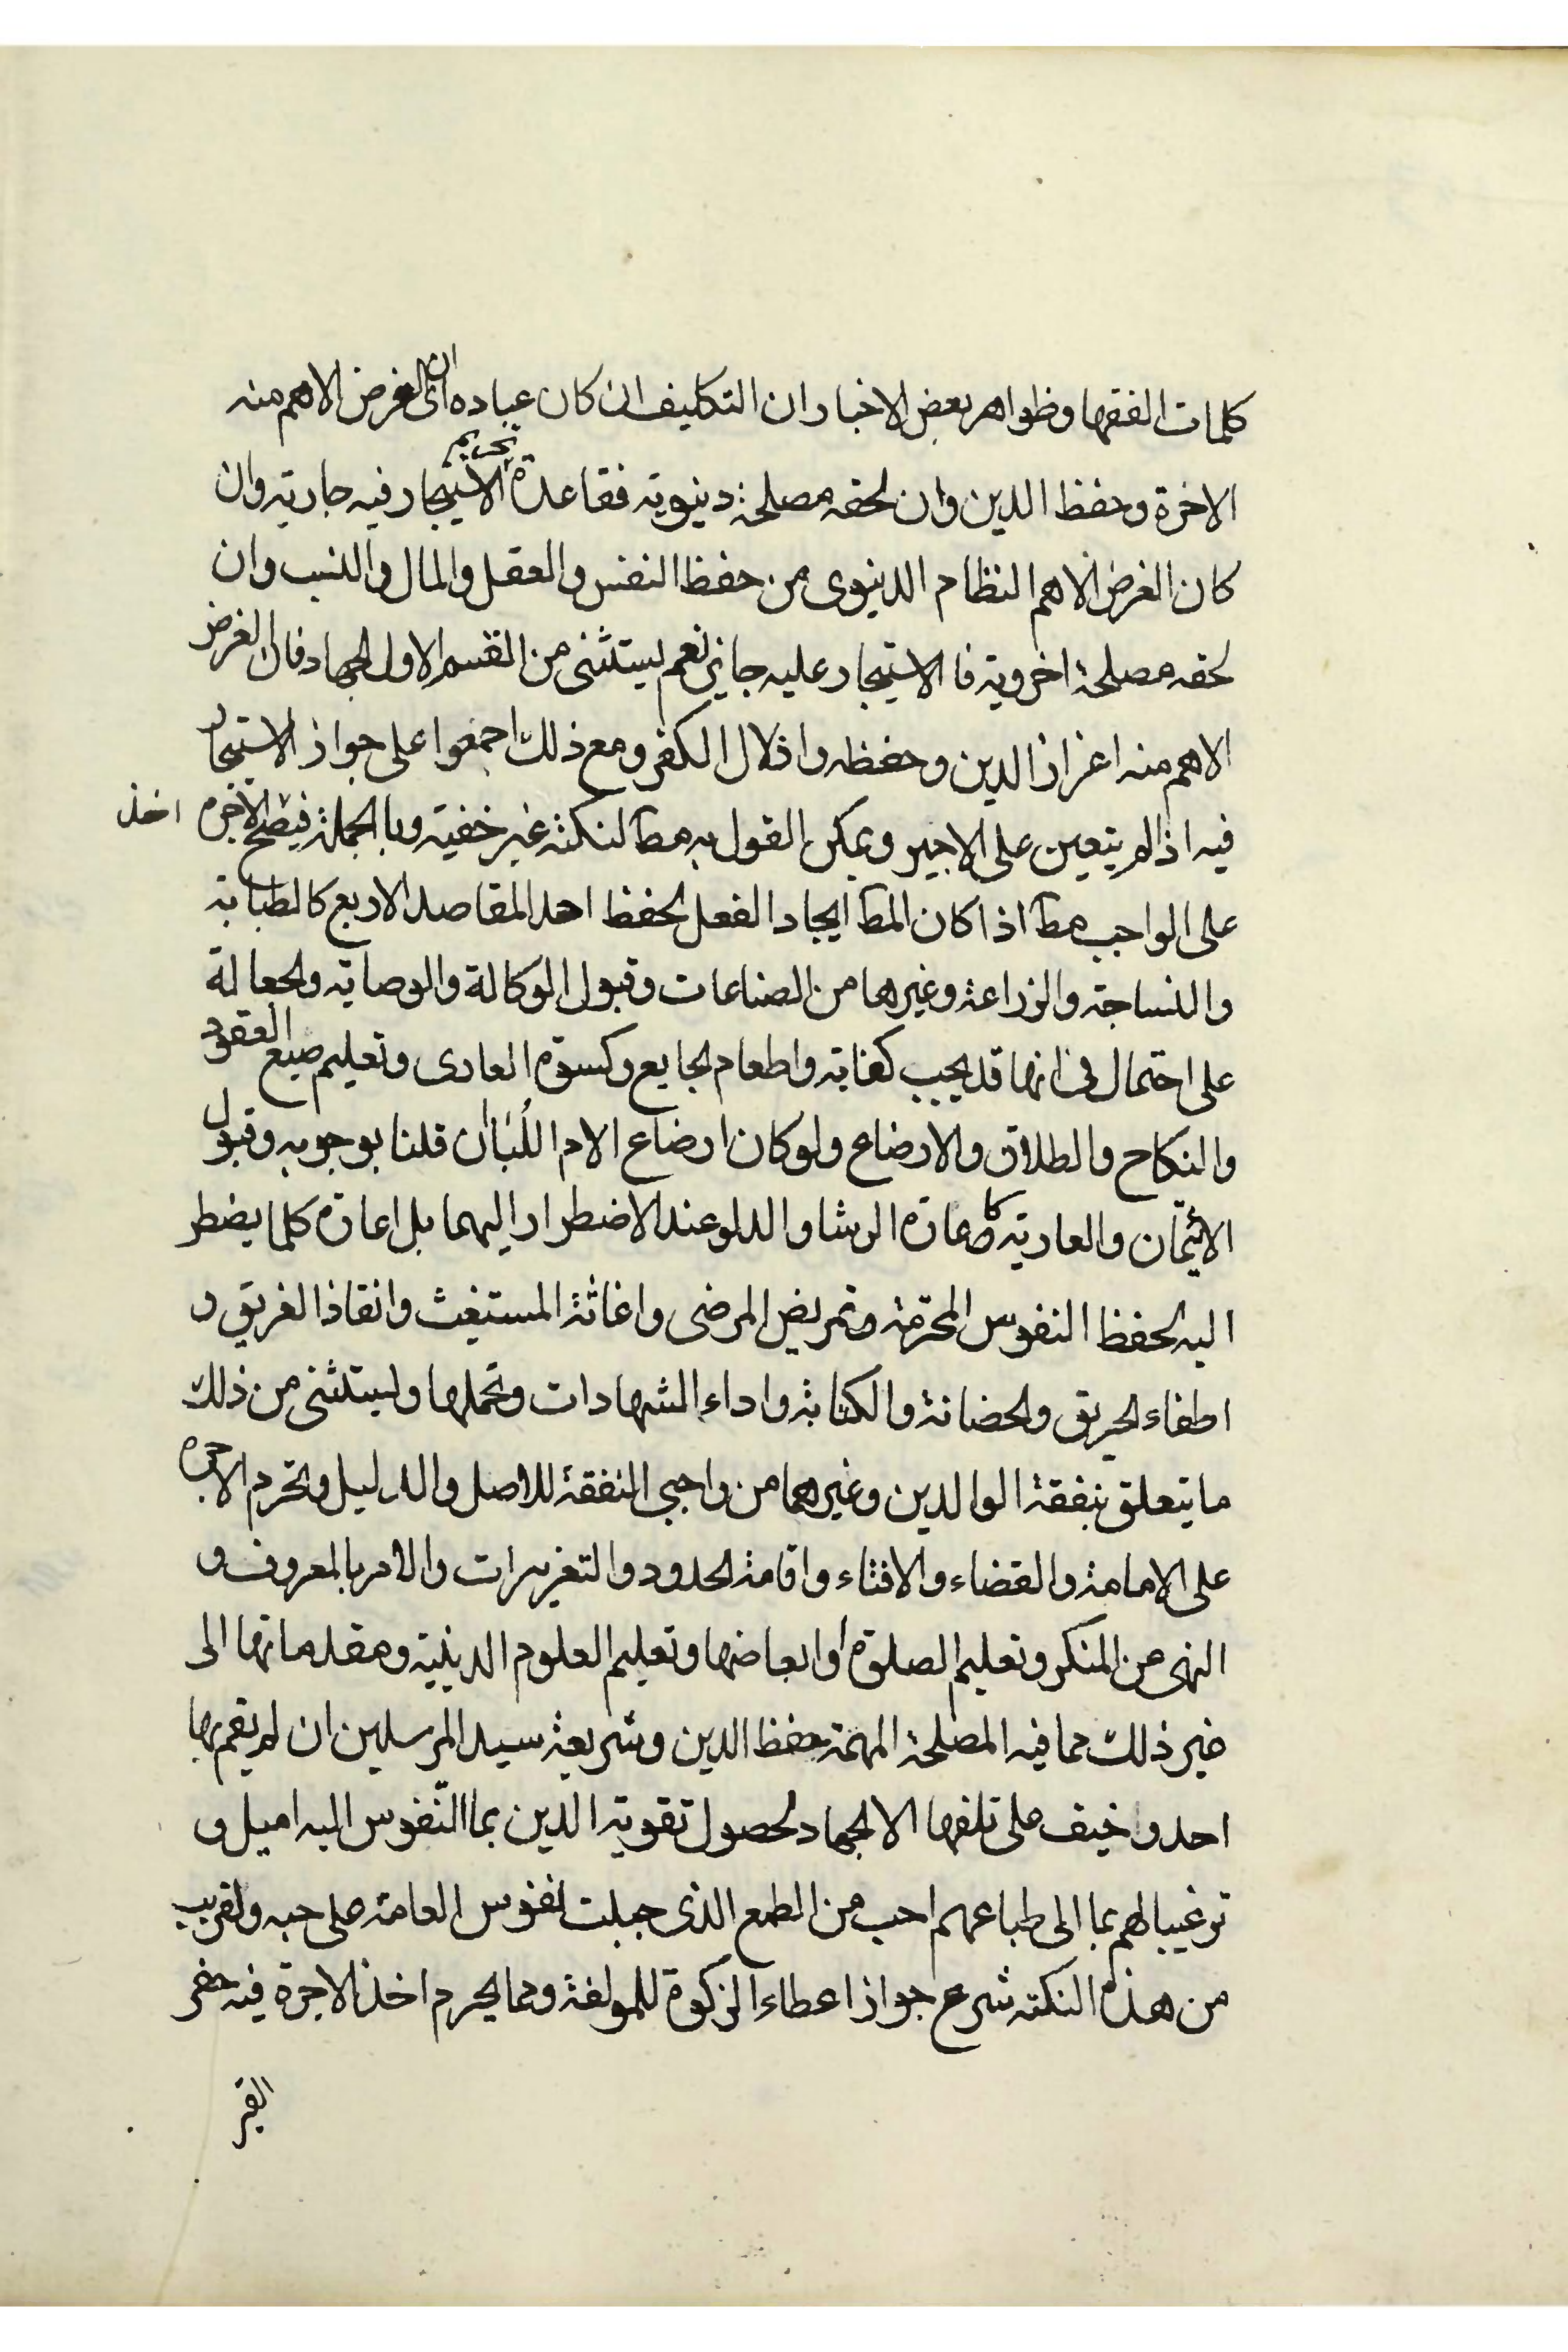 كلمات الفقها وظواهر بعض الاخبار ان التكليف ان كان عباده اى ان الغرض الاهم منه
الاخرة وحفظ الدين وان لحقه مصلحة دينوية فقاعدة تحريم الاستيجار فيه جارية وان
كان الغرض الاهم النظام الدينوى من حفظ النفس والعقل والمال والنسب وان
لحقه مصلحة اخروية فا الاستيجار عليه جايز نعم يستثنى من القسم الاول الجهاد فان الغرض
الاهم منه اعزاز الدين وحفظه واذلال الكفر ومع ذلك اجمعوا على جواز الاستيجار
فيه اذا لم يتعين على الاجير ويمكن القول به مط لنكتة غير خفية وبا الجملة فيصح اخذ الاجرة
على الواجب مط اذا كان المط ايجاد الفعل لحفظ احد المقاصد الاربع كالطبابة
والنساجة والزراعة وغيرها من الصناعات وقبول الوكالة والوصاية والجعالة
على احتمال فى انها قد يجب كفاية واطعام الجايع وكسوة العارى وتعليم صيغ العقود
والنكاح والطلاق والارضاع ولو كان ارضاع الام اللُبَأ ان قلنا بوجوبه وقبول
الائيتمان والعارية كاعارة الرشا والدلو عند الاضطرار اليهما بل اعارة كلما يضطر
اليه لحفظ النفوس المحرّمة وتمريض المرضى واغاثة المستغيث وانقاذ الغريق و
اطفاء الحريق والحضانة والكتابة واداء الشهادات وتحملها ويستثنى من ذلك
ما يتعلق بنفقة الوالدين وغيرهما من واجبى النفقة للاصل والدليل وتحرم الاجرة
على الامامة والقضاء والافتاء واقامة الحدود والتعزيرات والامر بالمعروف و
النهى عن المنكر وتعليم الصلوة او ابعاضها وتعليم العلوم الدينية ومقدماتها الى
غير ذلك مما فيه المصلحة المهمة حفظ الدين وشريعة سيد المرسلين ان لم يقم بها
احد وخيف على تلفها الا الجهاد لحصول تقوية الدين بما النّفوس اليه اميل و
ترغيبا لهم بما الى طباعهم احب من الطمع الذى جبلت نفوس العامة على حبه ولقريب
من هذه النكتة شرع جواز اعطاء الزكوة للمولفة ومما يحرم اخذ الاجرة فيه حفر
القبر